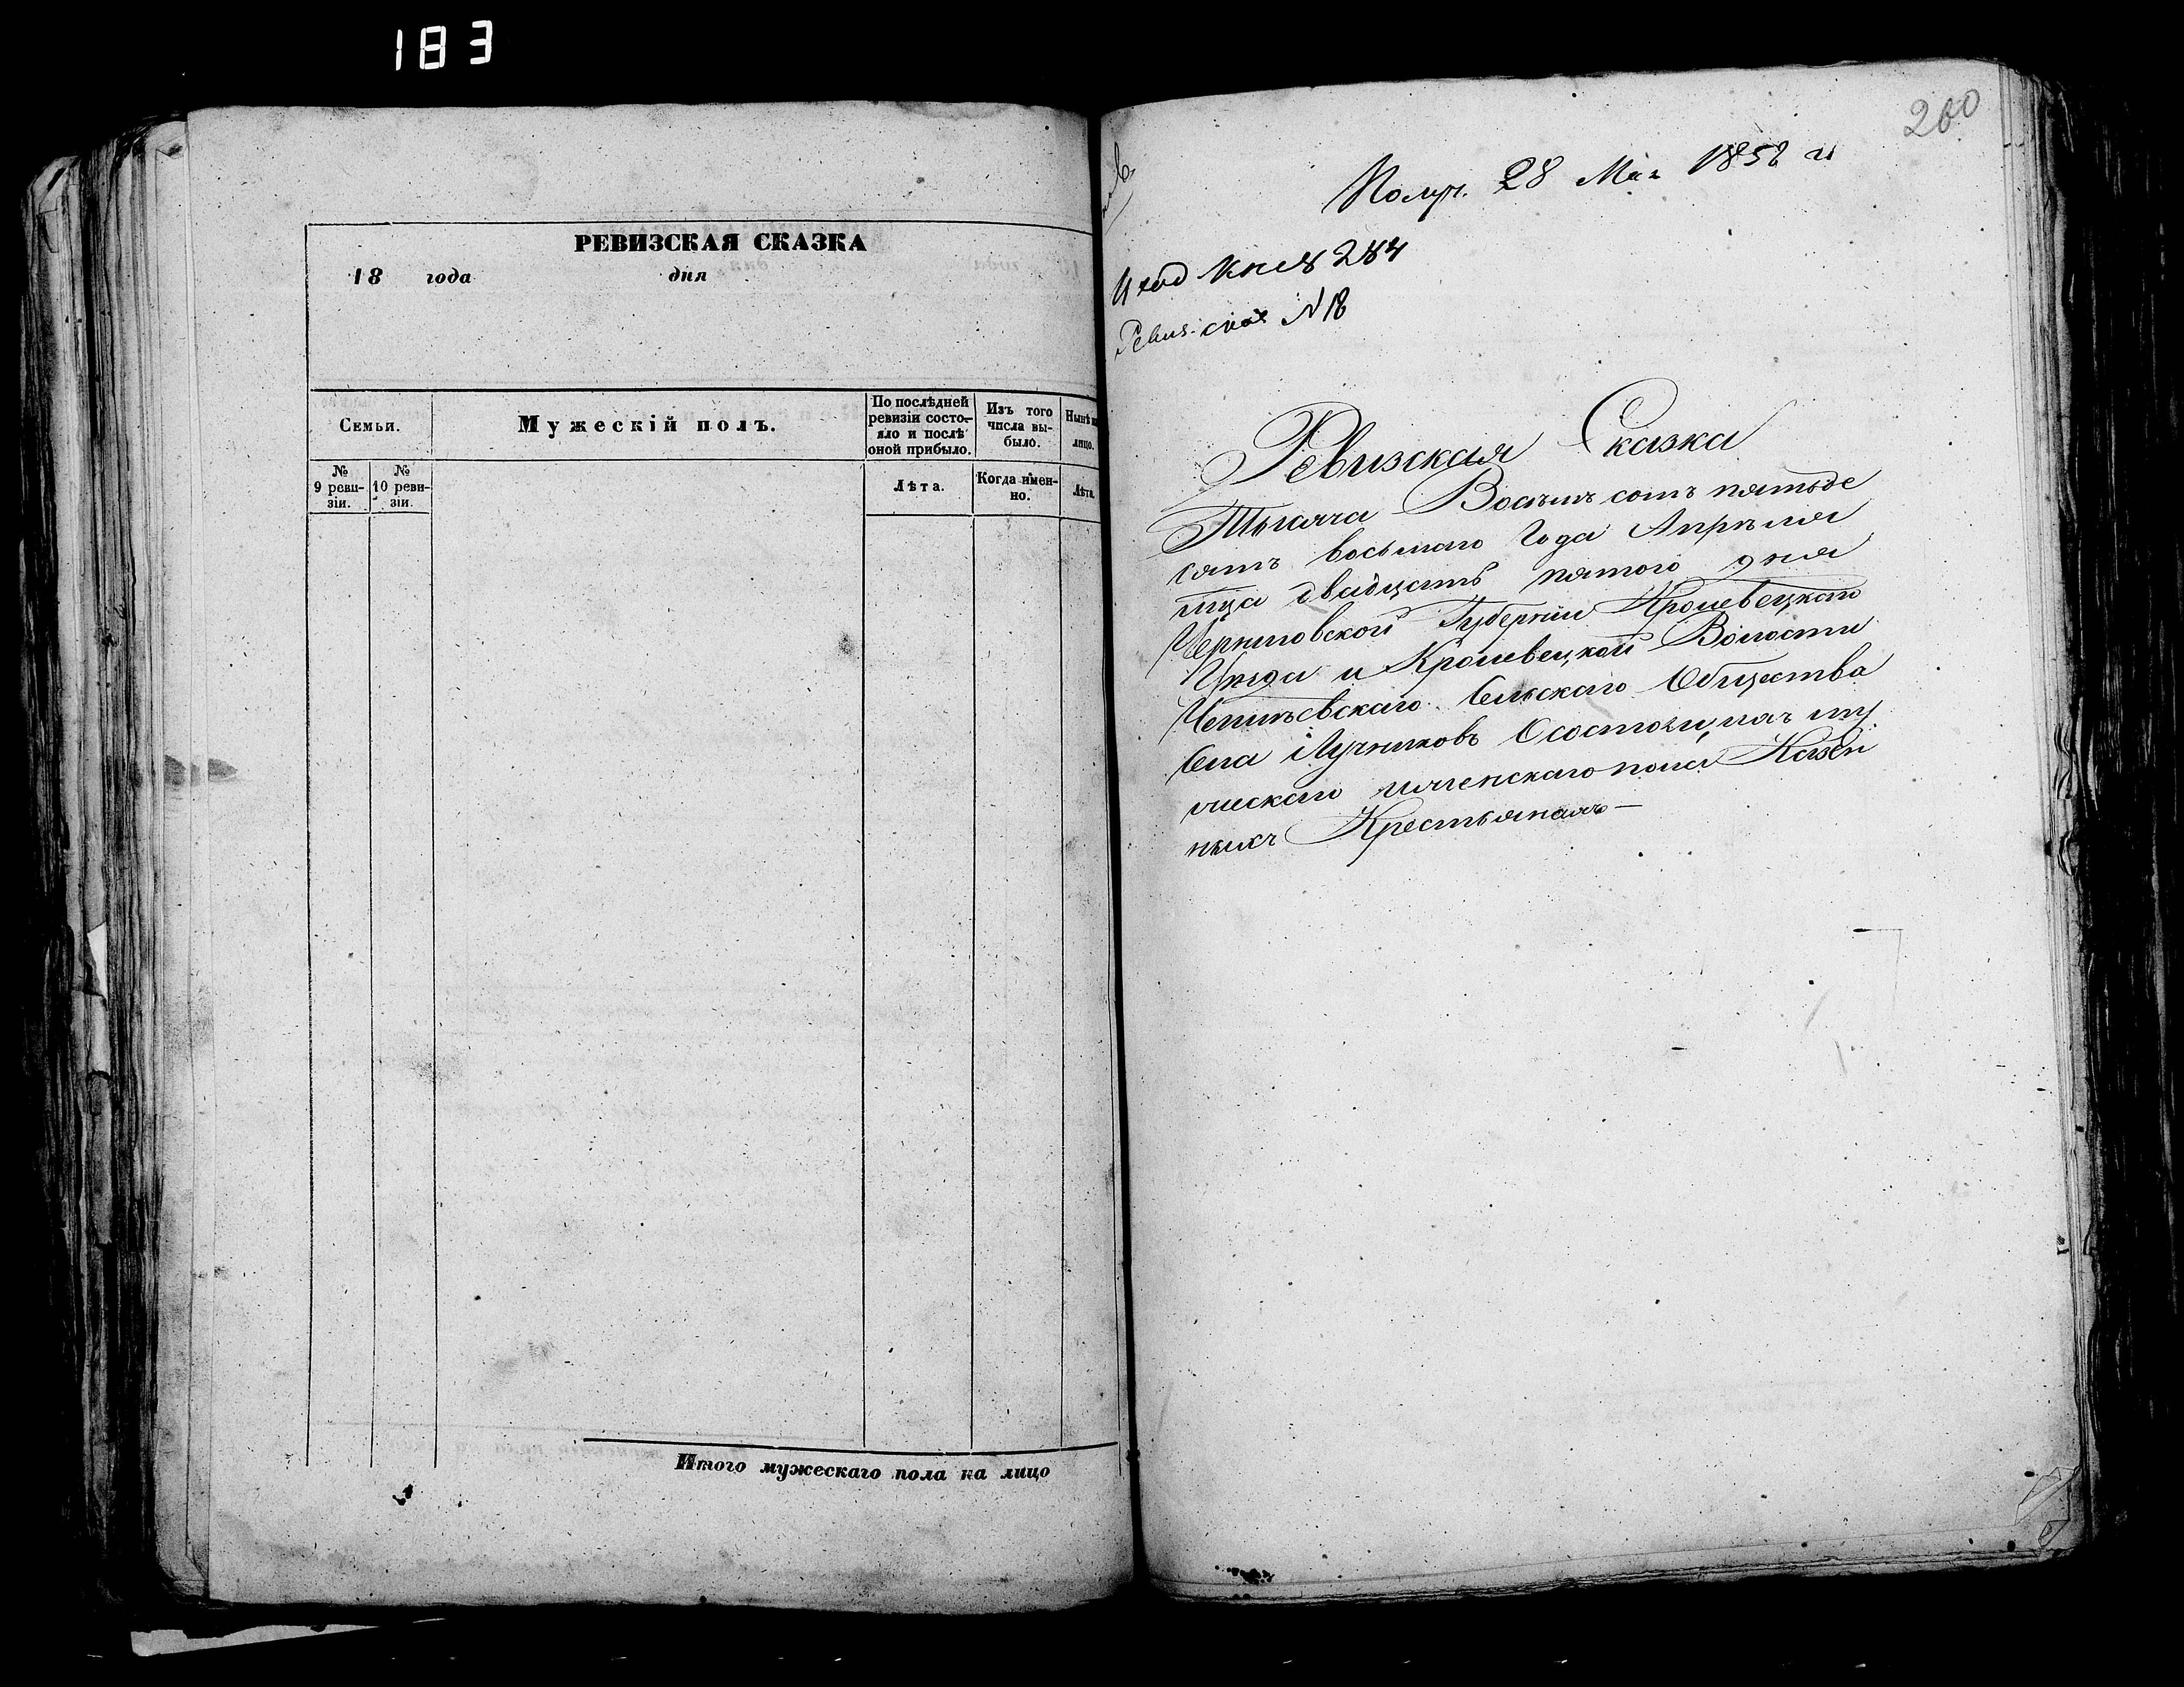 183
РЕВИЗСКАЯ СКАЗКА
18 года дня
Семьи.
Мужескій полъ.
По послѣдней ревизіи состо-
яло и послѣ оной прибыло.
Изъ того числа вы-
было.
Нынѣ
лицо.
№ 9 реви-
зіи.
№ 10 реви-
зіи.
Лѣта.
Когда имен-
но.
Лѣта.
Итого мужескаго пола на лицо
260
Получ. 28 Мая 1858 г
Ревиз. сказ N 18
Ревизская Сказка
Тысяча Восемъ сотъ пятьде
сятъ восьмаго Года Апрѣля
мца двадцать пятого дня
Черниговской Губерніи Кролевецкаго
Уѣзда и Кролевецкой Волости
Сельскаго Общества
Села Лучниковъ О состоящихъ му
жескаго и женскаго пола Казен
ныхъ Крестьянахъ—